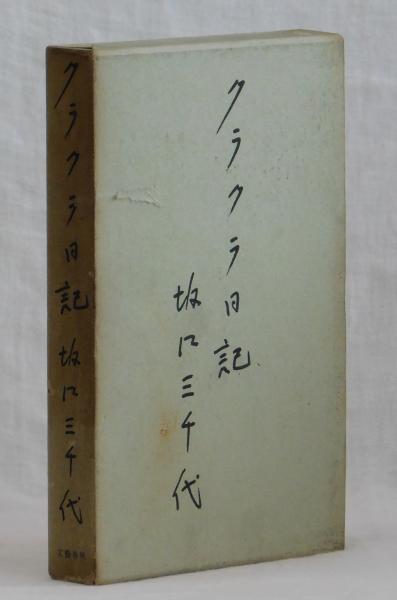 クラクラ日記
坂口三千代
クラクラ日記 坂口三千代
文藝春秋